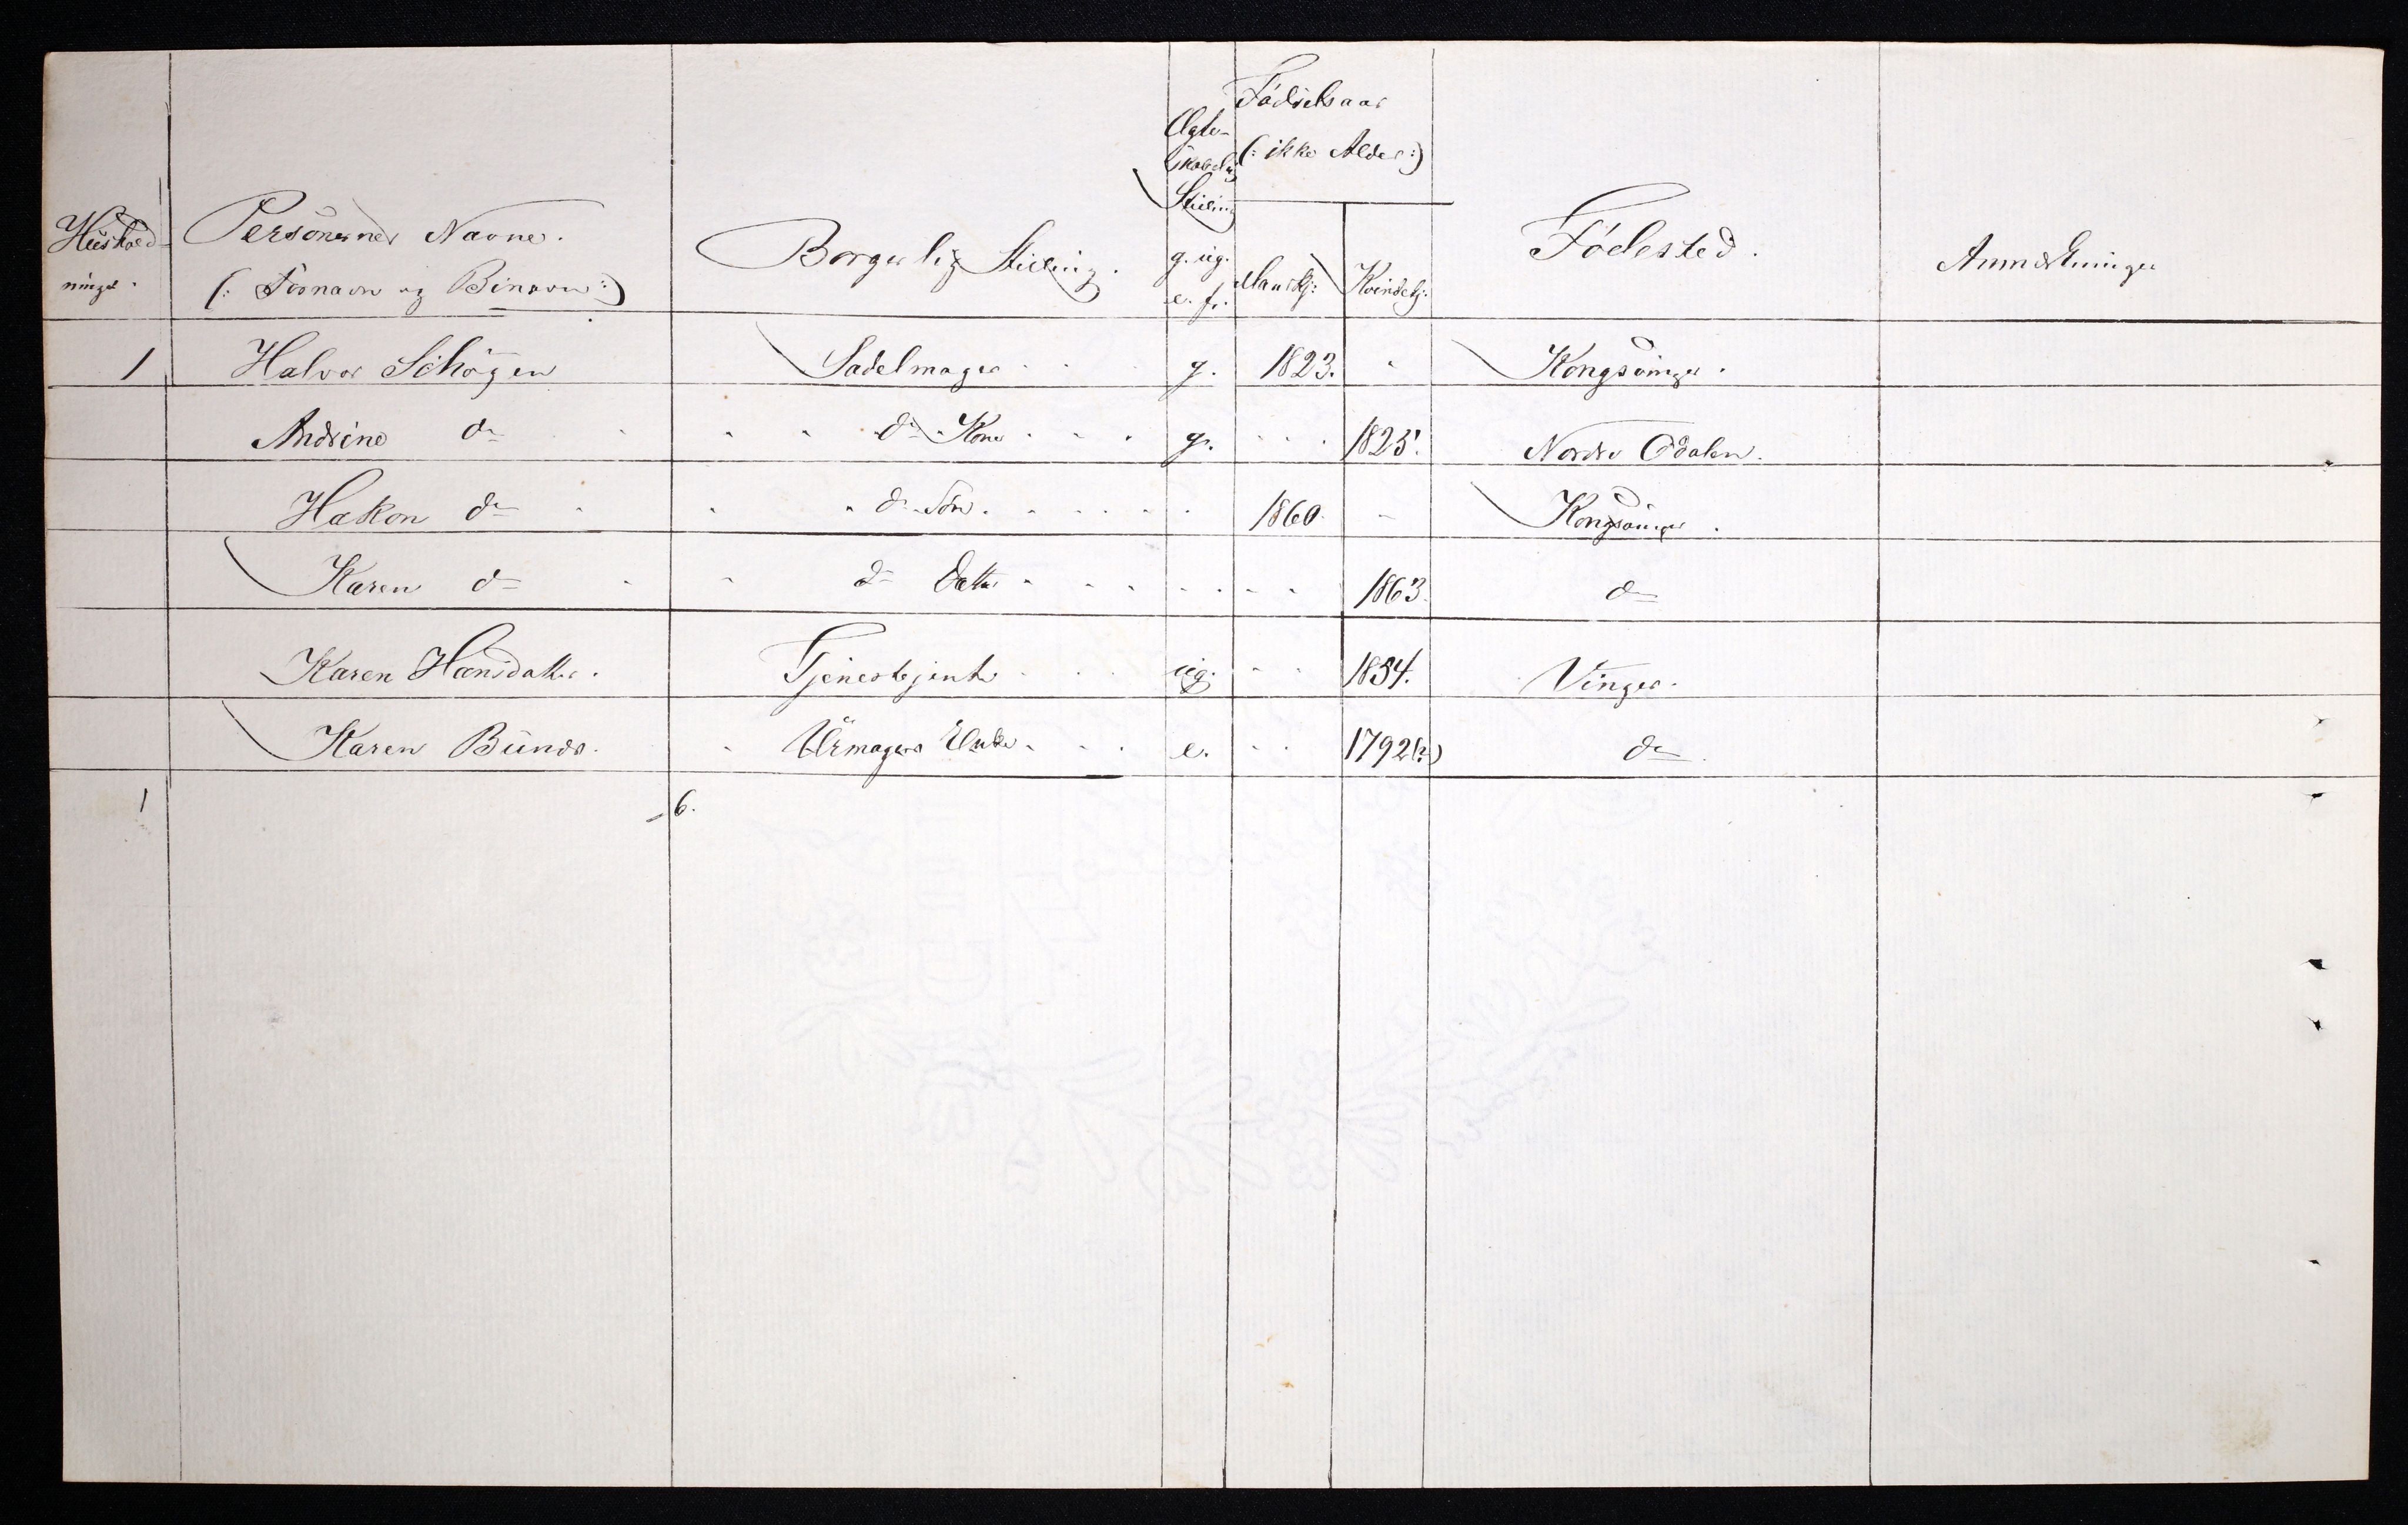 Fødselsaar
Ægte-
(: ikke Alder :)
skabelig
Stilling
Huushold-
ninger.
Personernes Navne.
(: Fornavn og Binavn :)
Borgerlig Stilling.
g. ug.
e. f.
Mandkj: Kvindekj:
Fødested.
Anmærkninger
1 Halvor Schøyen Sadelmager g. 1823. " Kongsvinger.
Andrine do do Kone g. 1825. Nordre Odalen.
Hakon do do Søn. 1860 - Kongsvinger.
Karen do do Datter 1863. do
Karen Hansdatter. Tjenestejente ug. 1854. Vinger.
Karen Bunds. Uhrmagers Enke e. 1792(?) do
1 6.